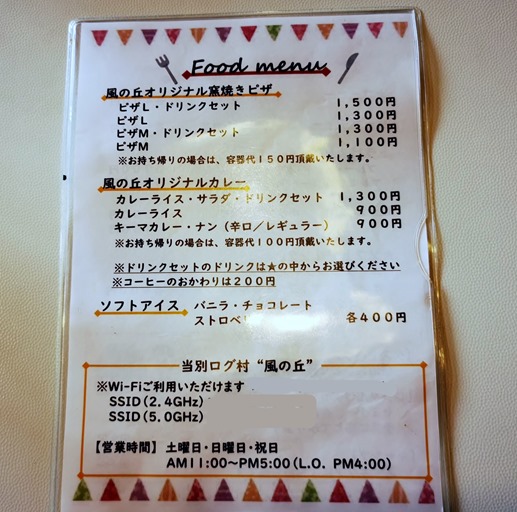 Food menu
風の丘オリジナル窯焼きピザ
ピザL・ドリンクセット 1,500円
ピザL 1,300円
ピザM・ドリンクセット 1,300円
ピザM 1,100円
※お持ち帰りの場合は、容器代150円頂戴いたします。
風の丘オリジナルカレー
カレーライス・サラダ・ドリンクセット 1,300円
カレーライス 900円
キーマカレー・ナン（辛口／レギュラー） 900円
※お持ち帰りの場合は、容器代100円頂戴いたします。
※ドリンクセットのドリンクは★の中からお選びください
※コーヒーのおかわりは200円
ソフトアイス バニラ・チョコレート
ストロベ 各400円
当別ログ村“風の丘”
※Wi-Fiご利用いただけます
SSID(2.4GHz)
SSID(5.0GHz)
【営業時間】 土曜日・日曜日・祝日
AM11:00～PM5:00(L.O. PM4:00)